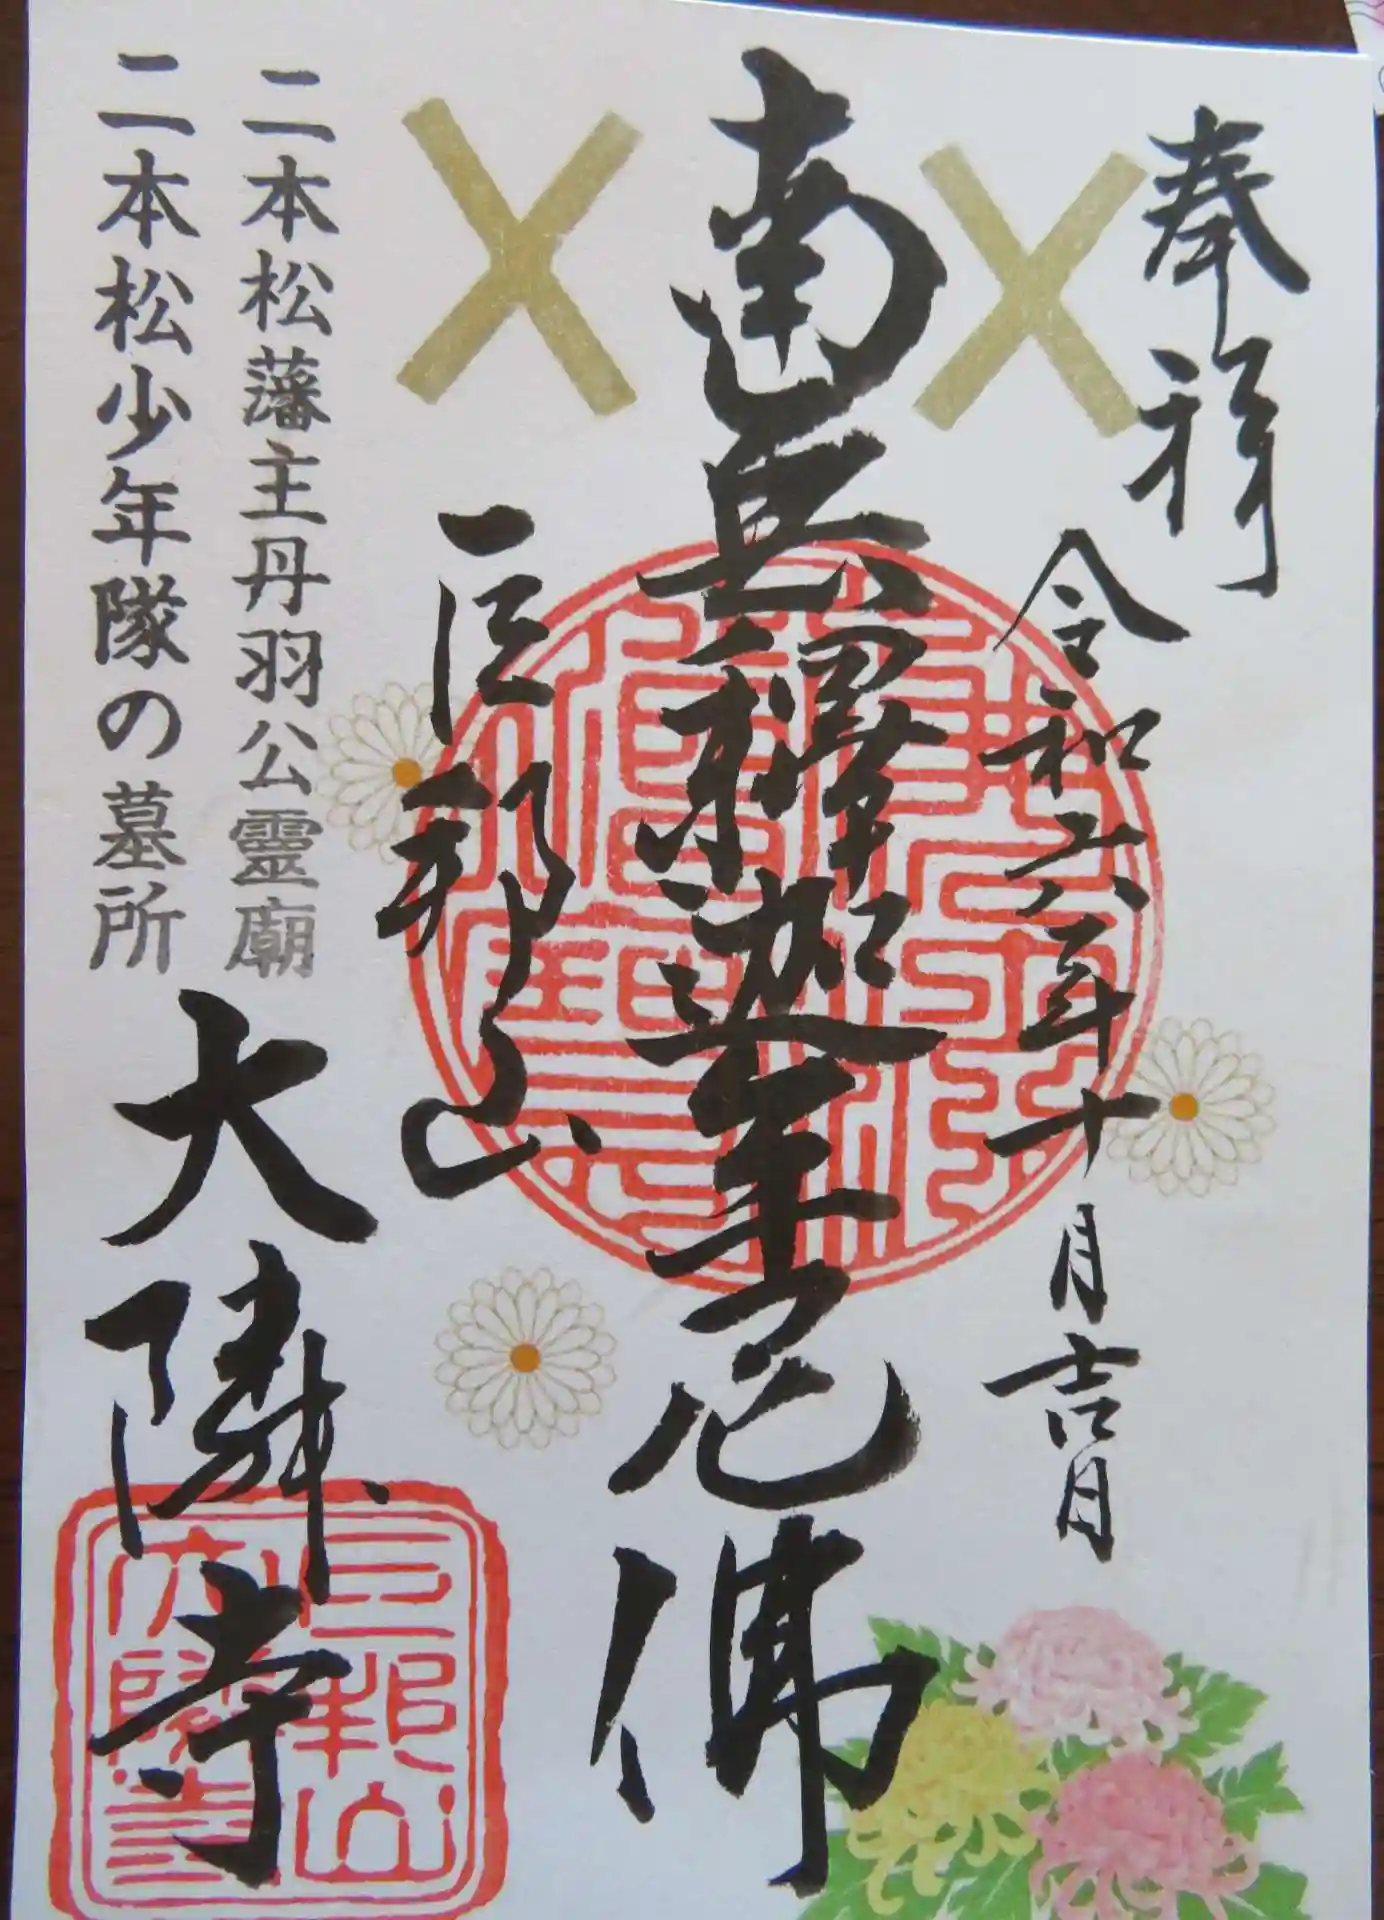 奉拝
令和六年十月吉日
南無釋迦牟尼佛
巨邦山
二本松藩主丹羽公靈廟
二本松少年隊の墓所
大隣寺
巨邦山
大隣寺